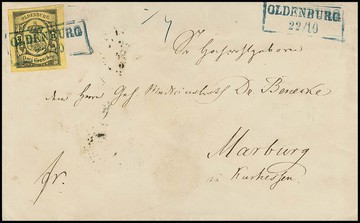 OLDENBURG
OLDENBURG
22/10
OLDENBURG
Sr Hochwohlgeboren
dem Herrn Geh Medicinalrath Dr Beneke
Marburg
in Kurhessen
fr.